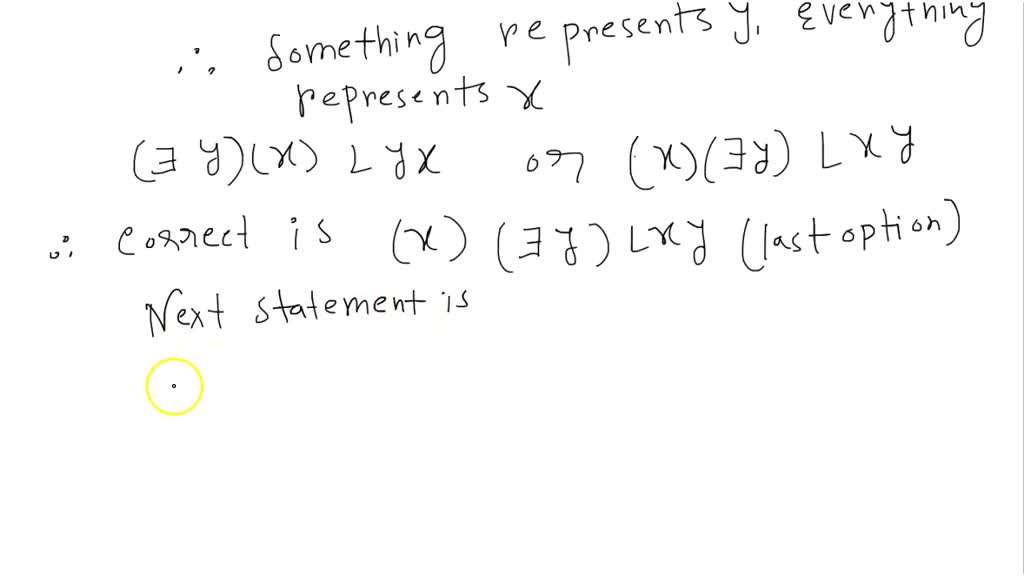 ∴ Something represents y, everything
represents x
(∃ y)(x) L y x or (x)(∃y) L x y
∴ correct is (x) (∃ y) L x y (last option)
Next statement is